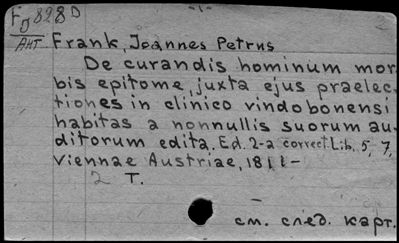 FD 828 D
-1-
Ант
Frank, Joannes Petrus
De curandis hominum mor-
bis epitome, juxta ejus praelec-
tiones in clinico vindobonensi
habitas a nonnullis suorum au-
ditorum edita. Ed. 2-a correct. Lib. 5, 7,
Viennae Austriae, 1811-
2 T.
см. след. карт.